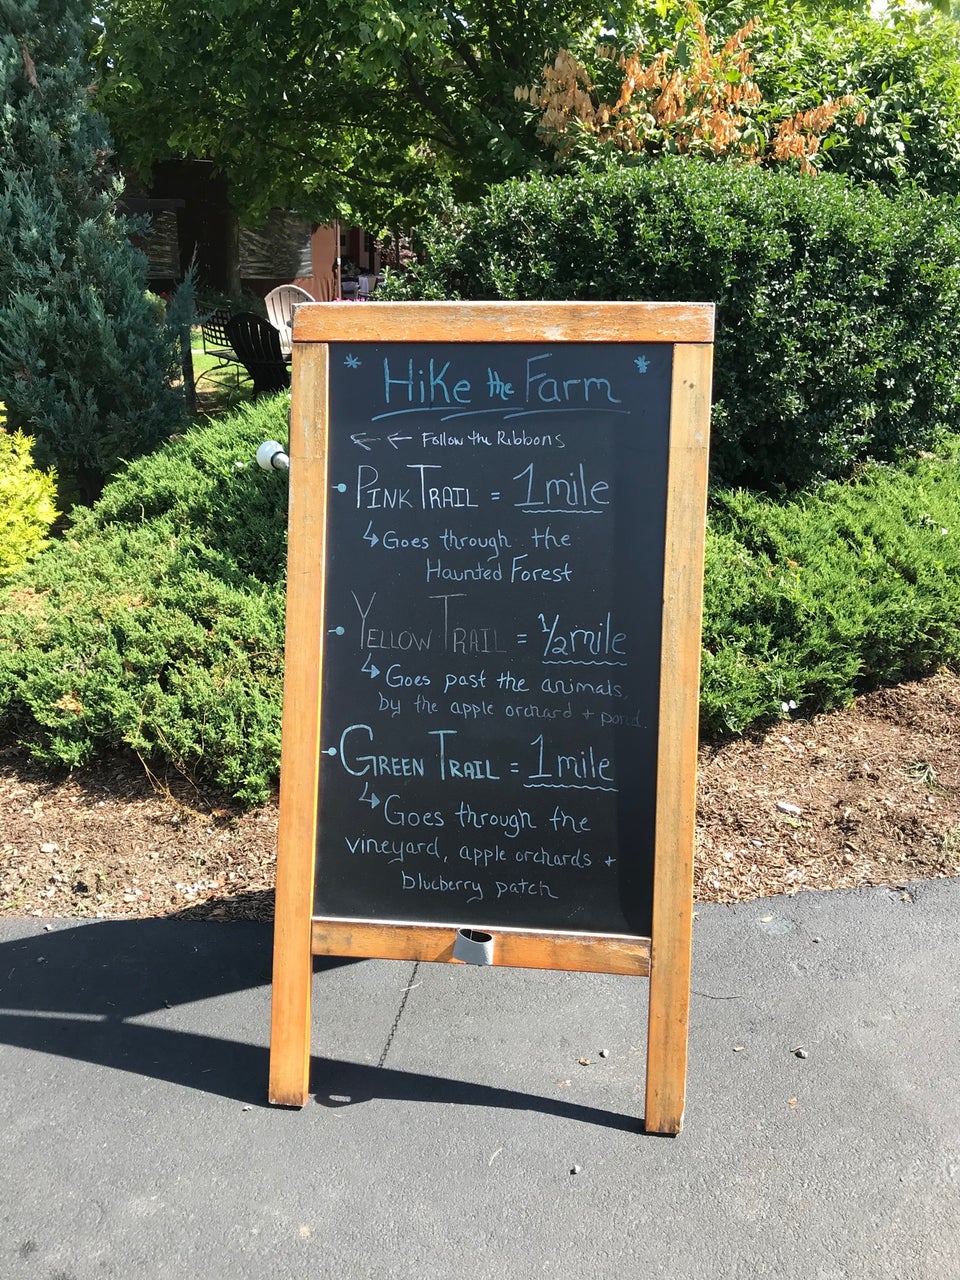 * Hike the Farm *
←← Follow the Ribbons
PINK TRAIL = 1 mile
↳ Goes through the
Haunted Forest
YELLOW TRAIL = 1/2 mile
↳ Goes past the animals,
by the apple orchard + pond.
GREEN TRAIL = 1 mile
↳ Goes through the
vineyard, apple orchards +
blueberry patch